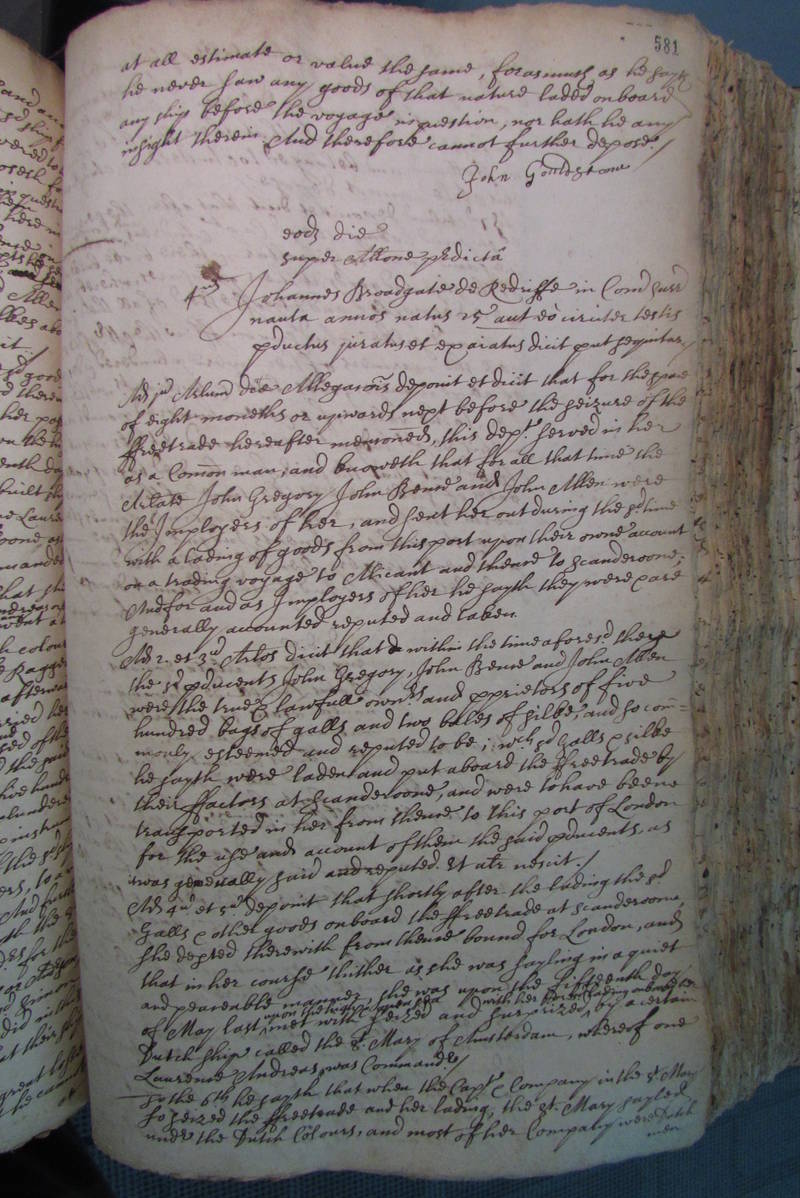 581
at all estimate or value the same, forasmuch as he sayth
he never saw any goods of that nature laded onboard
any ship before the voyage in question, nor hath he any
insight therein And therefore cannot further depose./
John Gouldstone
eod die
super Allone pdicta
4us Johannes Broadgate de Redriffe in Com Surr
nauta annos natus 25 aut eo circiter testis
pductus juratus et exaiatus dicit put sequitur./
Ad jum Arlum dce Allegaionis deponit et dicit that for the space
of eight moneths or upwards next before the seizure of the
ffreetrade hereafter menconed, this dept served in her
as a Comon man, and knoweth that for all that time the
Arlate John Gregory John Bence and John Allen were
the Imployers of her, and sent her out during the sd time
with a lading of goods from this port upon their owne account
on a trading voyage to Alicant and thence to Scanderoone,
And for and as Imployers of her he sayth they were and are
generally accounted reputed and taken.
Ad 2. et 3um Arlos dicit that within the time aforesd there
the sd pducents John Gregory, John Bence and John Allen
were the true & lawfull owners and pprietors of five
hundred bags of galls and two bales of silke, and so com=
monly esteemed and reputed to be; wch sd Galls & silke
he sayth were laden and put aboard the ffreetrade by
their ffactors at Scanderoone, and were to have beene
transported in her from thence to this port of London
for the use and account of them the said pducents, as
was generally said and reputed. Et alr nescit./
Ad 4um et 5um deponit that shortly after the lading the sd
Galls & other goods onboard the ffreetrade at Scanderoone,
she depted therewith from thence bound for London, and
that in her course thither as she was sayling in a quiet
and peaceable manner, she was upon the fifteenth day
of May last met with seized and surprized, by a certain
upon the high & open sea with her lading onboard her
Dutch ship called the St. Mary of Amsterdam, whereof one
Laurence Andreas was Commander./
To the 6th he sayth that when the Capt & Company in the St Mary
so seized the ffreetrade and her lading, the St. Mary sayled
under the Dutch Colours, and most of her Company were Dutch
men